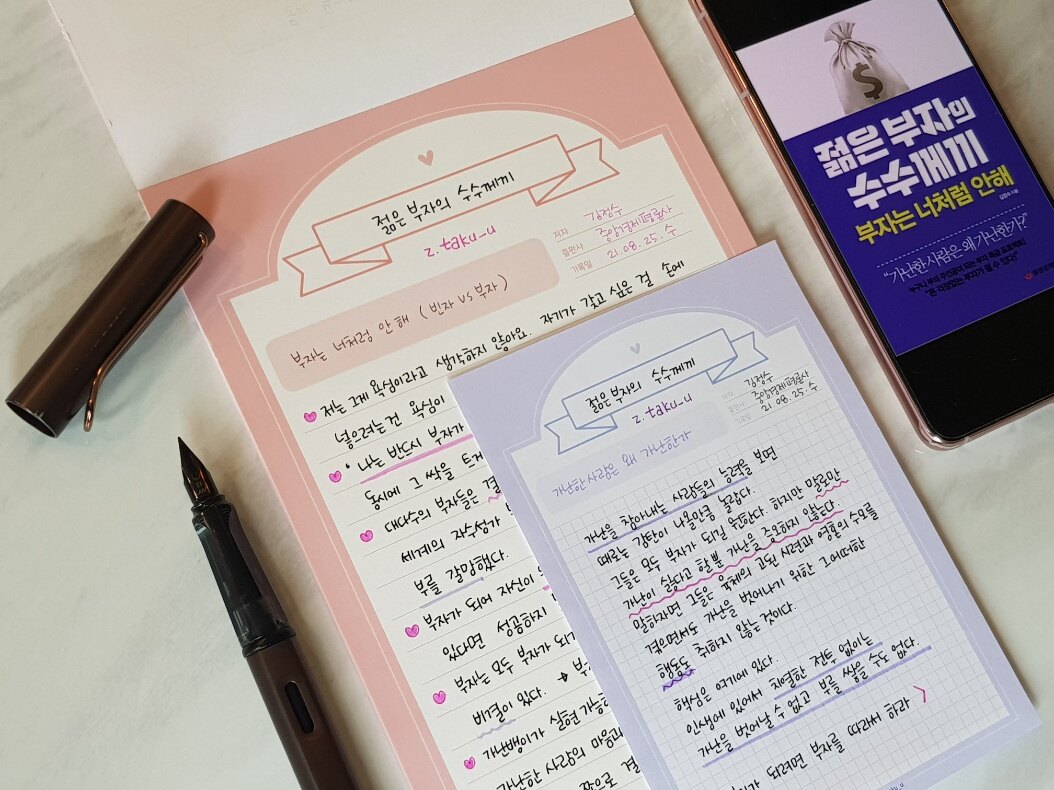 젊은 부자의 수수께끼
z.taku_u
저자 김정수
출판사 중앙경제평론사
기록일 21. 08. 25. 수
부자는 너처럼 안 해 ( 빈자 vs 부자 )
저는 그게 욕심이라고 생각하지 않아요. 자기가 갖고 싶은 걸 손에
넣으려는 건 욕심이
· 나는 반드시 부자가
동시에 그 싹을 트게
대다수의 부자들은 결
세계의 자수성가
부를 갈망했다.
부자가 되어 자신이
있다면 성공하지
부자는 모두 부자가 되기
비결이 있다. → 부
가난뱅이가 실현 가능
가난한 사람의 마음과
작으로 결
젊은 부자의 수수께끼
z.taku_u
저자 김정수
출판사 중앙경제평론사
21. 08. 25. 수
가난한 사람은 왜 가난한가
가난을 참아내는 사람들의 능력을 보면
때로는 감탄이 나올만큼 놀랍다.
그들은 모두 부자가 되길 원한다. 하지만 말로만
가난이 싫다고 할 뿐 가난을 증오하지 않는다.
말하자면 그들은 육체의 고된 시련과 영혼의 수모를
겪으면서도 가난을 벗어나기 위한 그 어떠한
행동도 취하지 않는 것이다.
핵심은 여기에 있다.
인생에 있어서 치열한 전투 없이는
가난을 벗어날 수 없고 부를 쌓을 수도 없다.
되려면 부자를 따라서 하라
$
젊은 부자의
수수께끼
부자는 너처럼 안해
김정수 지음
"가난한 사람은 왜 가난한가?"